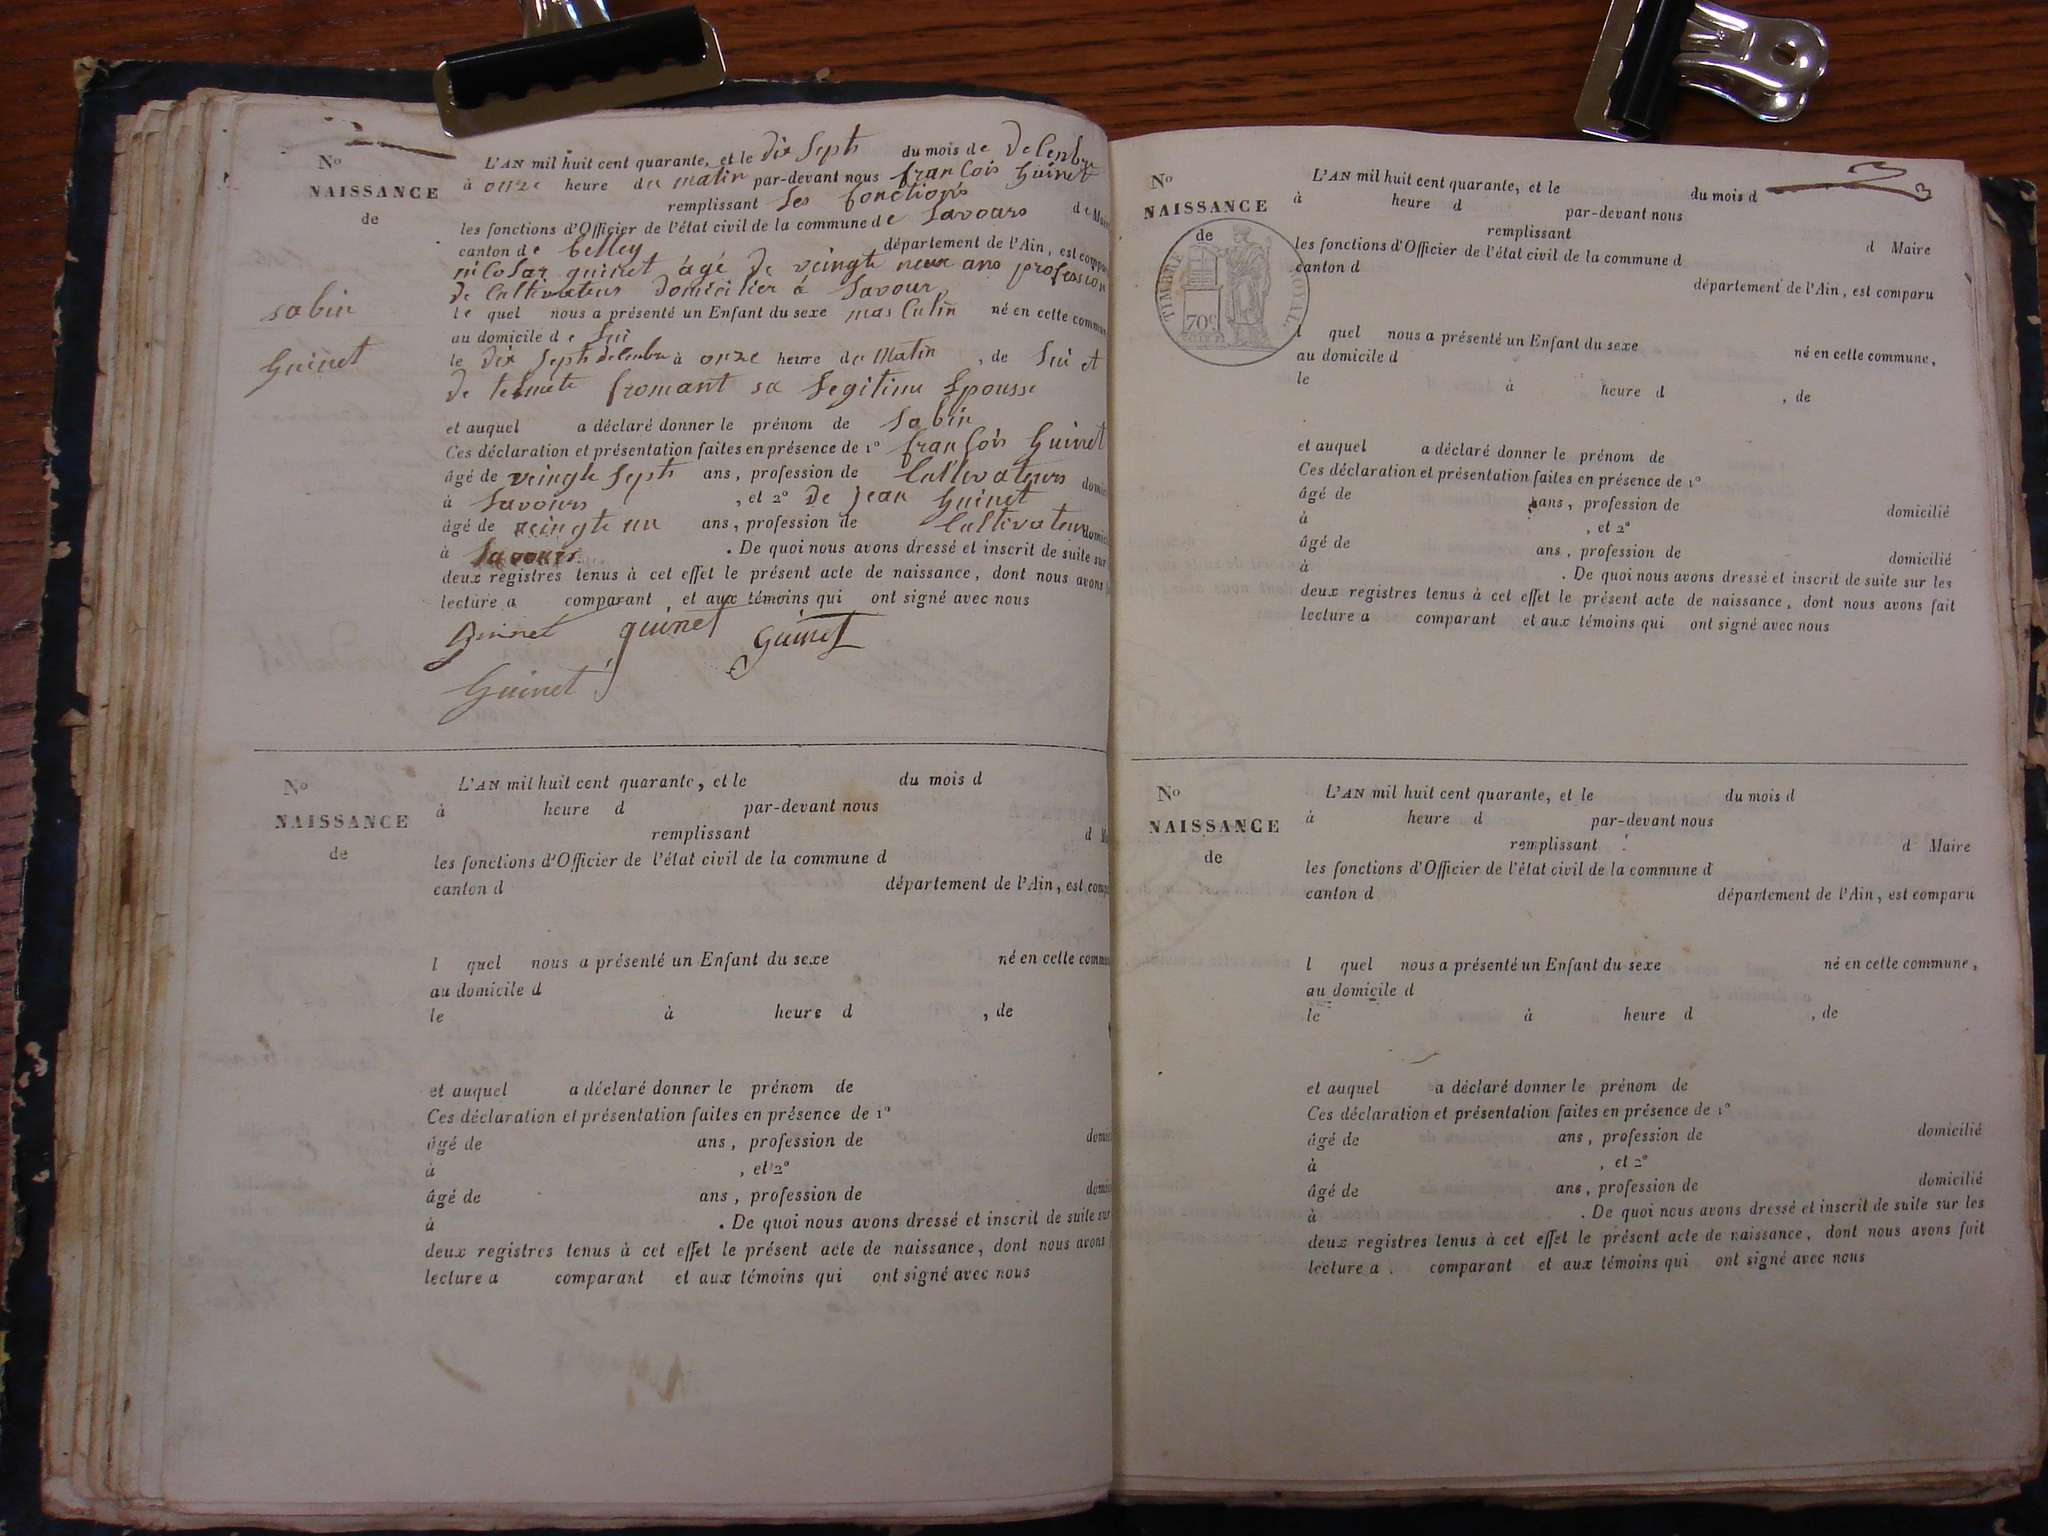 No
NAISSANCE
de
sabin
Guinet
L'AN mil huit cent quarante, et le dix Sept du mois de decembre
à onze heure du matin par-devant nous françois Guinet
remplissant Les fonctions de Maire
les fonctions d'Officier de l'état civil de la commune de Savours
canton de belley département de l'Ain, est compar
nicolas guinet âgé de veingt neux ans profession
de Cultivateur domicilier à Savour
le quel nous a présenté un Enfant du sexe masculin né en cette commun
au domicile de Lui
le dix Sept decembre à onze heure du Matin , de Lui et
de fromant sa Legitime Epousse
et auquel a déclaré donner le prénom de Sabin
Ces déclaration et présentation faites en présence de 1º françois Guinet
âgé de veingt Sept ans, profession de Cultivateurs domici
à Savours , et 2º de jean Guinet
âgé de ans, profession de Cultivateur domici
à Savours . De quoi nous avons dressé et inscrit de suite sur
deux registres tenus à cet effet le présent acte de naissance, dont nous avons
lecture a comparant, et aux témoins qui ont signé avec nous
Guinet guinet Guinet
Guinet
No
NAISSANCE
de
L'AN mil huit cent quarante, et le du mois d
à heure d par-devant nous
remplissant d M
les fonctions d'Officier de l'état civil de la commune d
canton d département de l'Ain, est comp
l quel nous a présenté un Enfant du sexe né en cette commu
au domicile d
le à heure d , de
et auquel a déclaré donner le prénom de
Ces déclaration et présentation faites en présence de 1º
âgé de ans, profession de domici
à , et 2º
âgé de ans, profession de domici
à . De quoi nous avons dressé et inscrit de suite sur
deux registres tenus à cet effet le présent acte de naissance, dont nous avons
lecture a comparant et aux témoins qui ont signé avec nous
No
NAISSANCE
de
TIMBRE ROYAL.
70c
L'AN mil huit cent quarante, et le du mois d
à heure d par-devant nous
remplissant d Maire
les fonctions d'Officier de l'état civil de la commune d
canton d département de l'Ain, est comparu
l quel nous a présenté un Enfant du sexe né en cette commune,
au domicile d
le à heure d , de
et auquel a déclaré donner le prénom de
Ces déclaration et présentation faites en présence de 1º
âgé de ans, profession de domicilié
à , et 2º
âgé de ans, profession de domicilié
à . De quoi nous avons dressé et inscrit de suite sur les
deux registres tenus à cet effet le présent acte de naissance, dont nous avons fait
lecture a comparant et aux témoins qui ont signé avec nous
No
NAISSANCE
de
L'AN mil huit cent quarante, et le du mois d
à heure d par-devant nous
remplissant d Maire
les fonctions d'Officier de l'état civil de la commune d
canton d département de l'Ain, est comparu
l quel nous a présenté un Enfant du sexe né en cette commune,
au domicile d
le à heure d , de
et auquel a déclaré donner le prénom de
Ces déclaration et présentation faites en présence de 1º
âgé de ans, profession de domicilié
à , et 2º
âgé de ans, profession de domicilié
à . De quoi nous avons dressé et inscrit de suite sur les
deux registres tenus à cet effet le présent acte de naissance, dont nous avons fait
lecture a . comparant et aux témoins qui ont signé avec nous